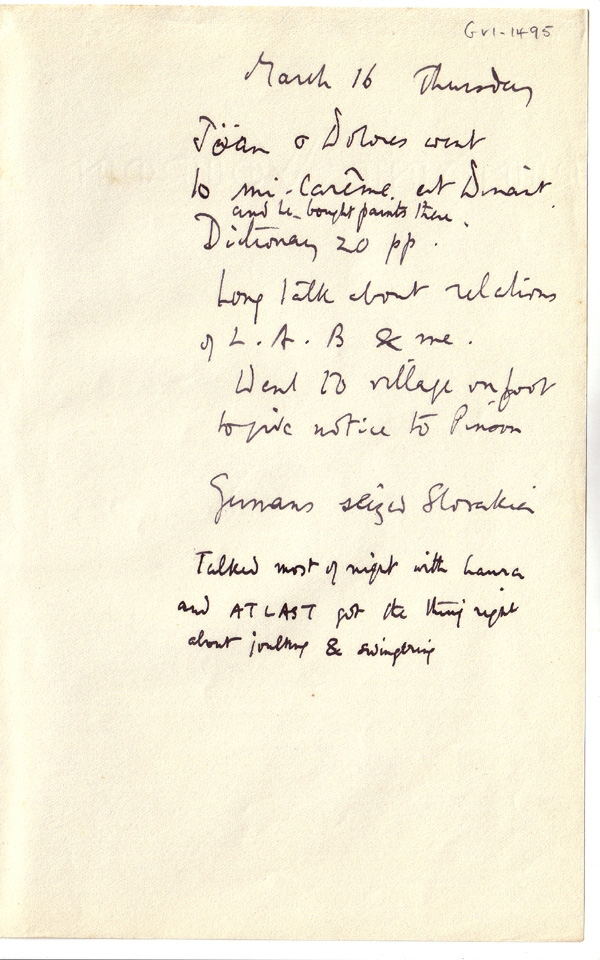 GV1-1495
March 16 Thursday
& Dolores went
to mi-Carême at Dinant
and he bought paints there.
Dictionary 20 pp.
Long talk about relations
of L. A. B & me.
Went to village on foot
to give notice to Pinson
Germans seized Slovakia
Talked most of night with Laura
and AT LAST got the thing right
about &